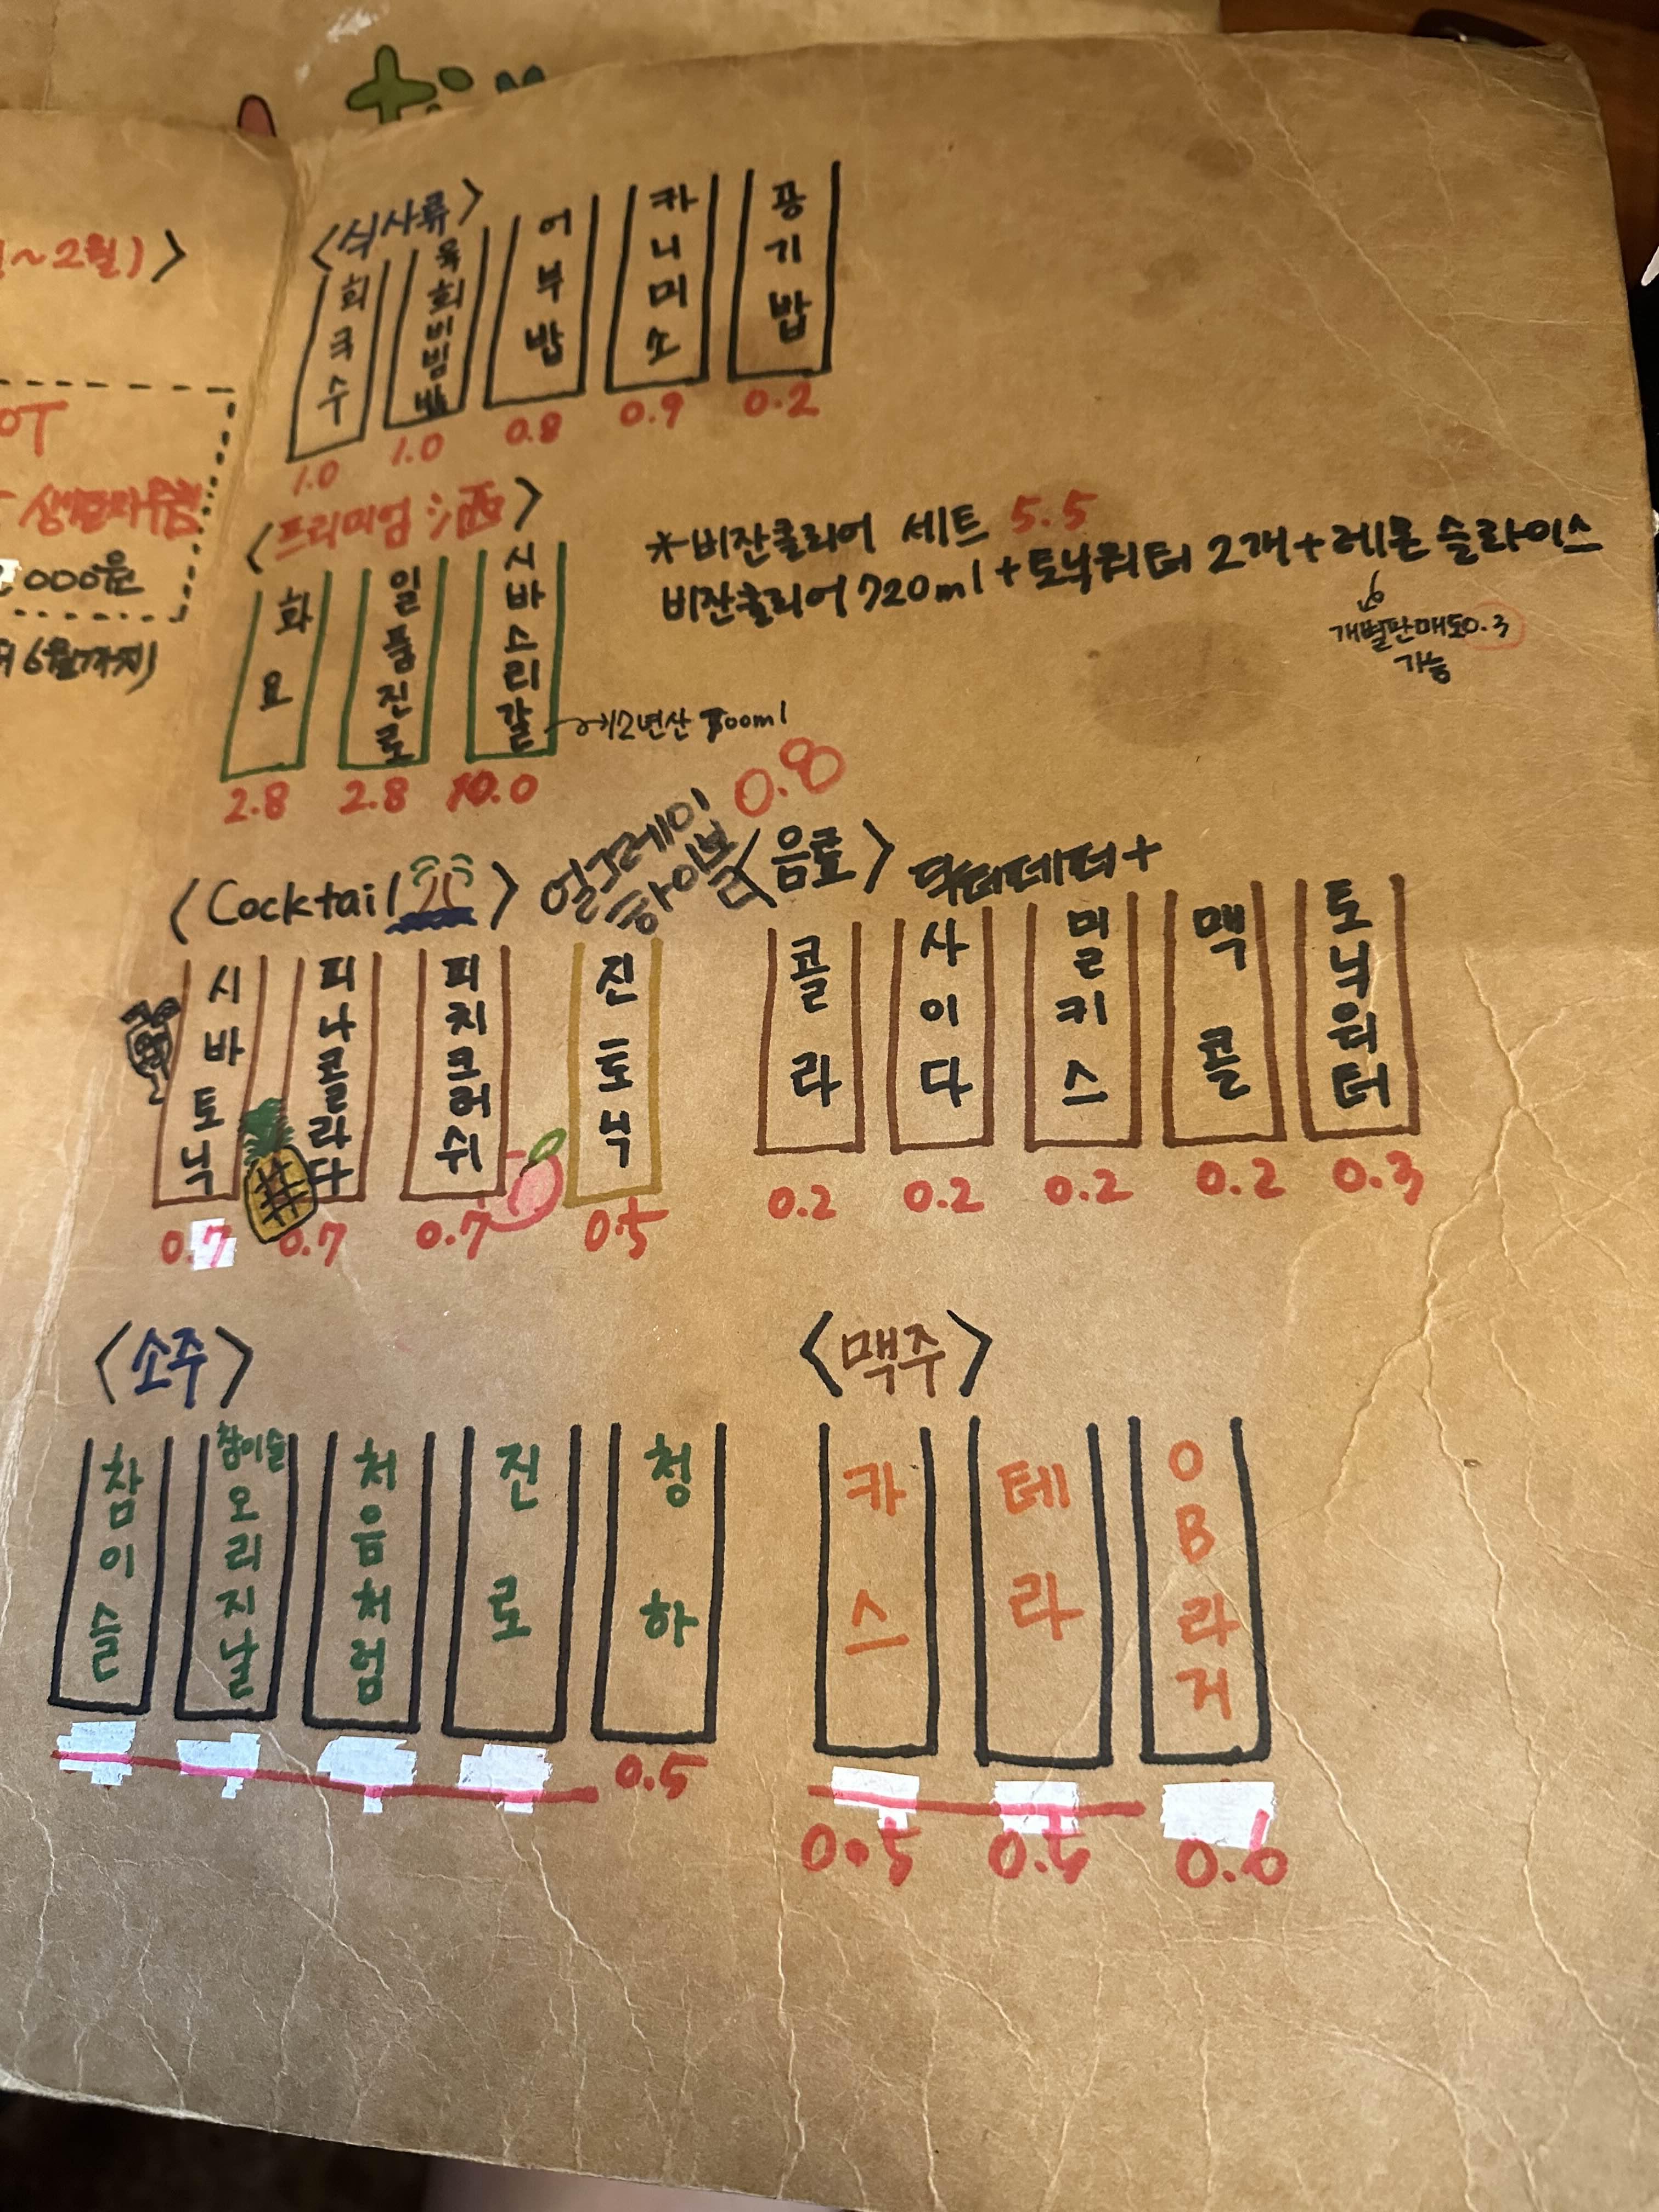 ~2월) >
<식사류>
회국수
육회비빔밥
어부밥
카니미소
공기밥
1.0
1.0
0.8
0.9
0.2
OT
생
000원
6월까지)
<프리미엄 酒>
화요
일품진로
시바스리갈
→12년산 700ml
2.8
2.8
10.0
*비잔클리어 세트 5.5
비잔클리어 720ml + 토닉워터 2개 + 레몬 슬라이스
개별판매도 0.3
가능
<Cocktail>
얼그레이
하이볼
0.8
시바토닉
피나콜라다
피치크러쉬
진토닉
0.7
0.7
0.7
0.5
<음료>
닥터페퍼+
콜라
사이다
밀키스
맥콜
토닉워터
0.2
0.2
0.2
0.2
0.3
<소주>
참이슬
참이슬 오리지날
처음처럼
진로
청하
0.5
<맥주>
카스
테라
OB라거
0.5
0.5
0.6